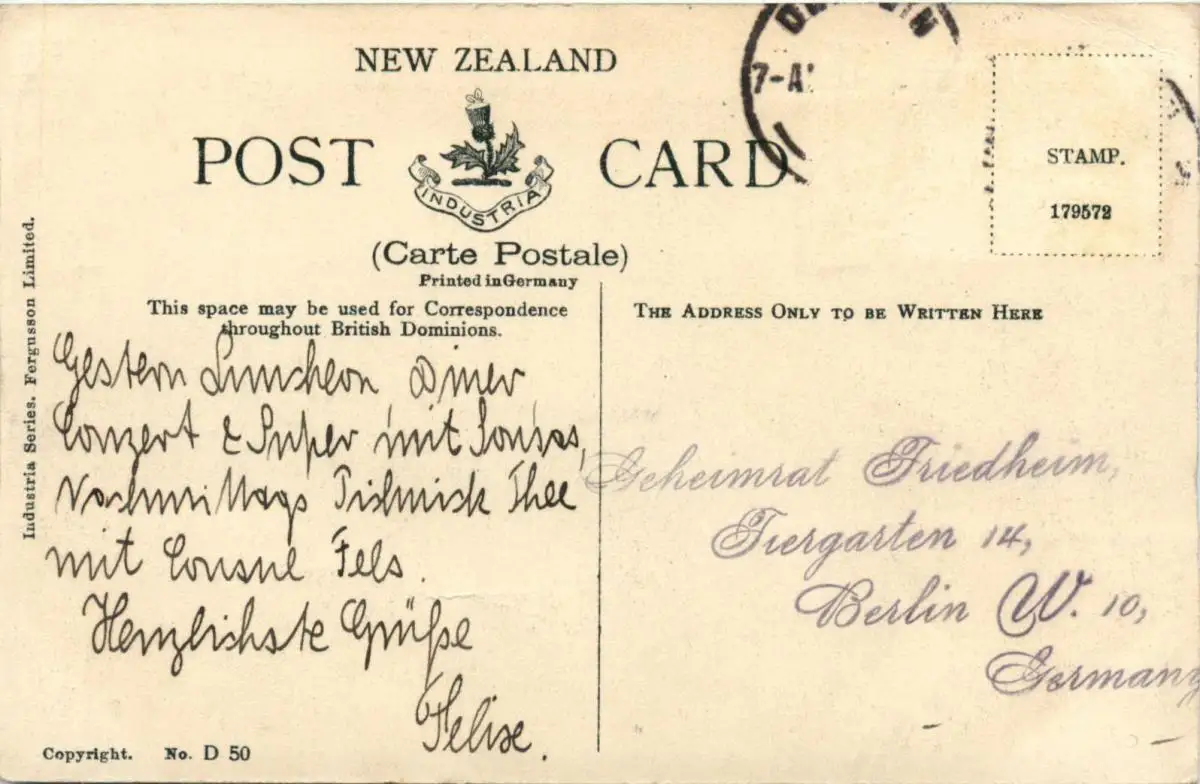 NEW ZEALAND
POST CARD
INDUSTRIA
(Carte Postale)
Printed in Germany
This space may be used for Correspondence
throughout British Dominions.
THE ADDRESS ONLY TO BE WRITTEN HERE
STAMP.
179572
7-A
Industria Series. Fergusson Limited.
Gestern Luncheon Diner
Conzert & Super mit Sousas,
Nachmittags Picknick Thee
mit Consul Fels.
Herzlichste Grüße
Felise.
Geheimrat Friedheim,
Tiergarten 14,
Berlin W. 10,
Germany
Copyright. No. D 50